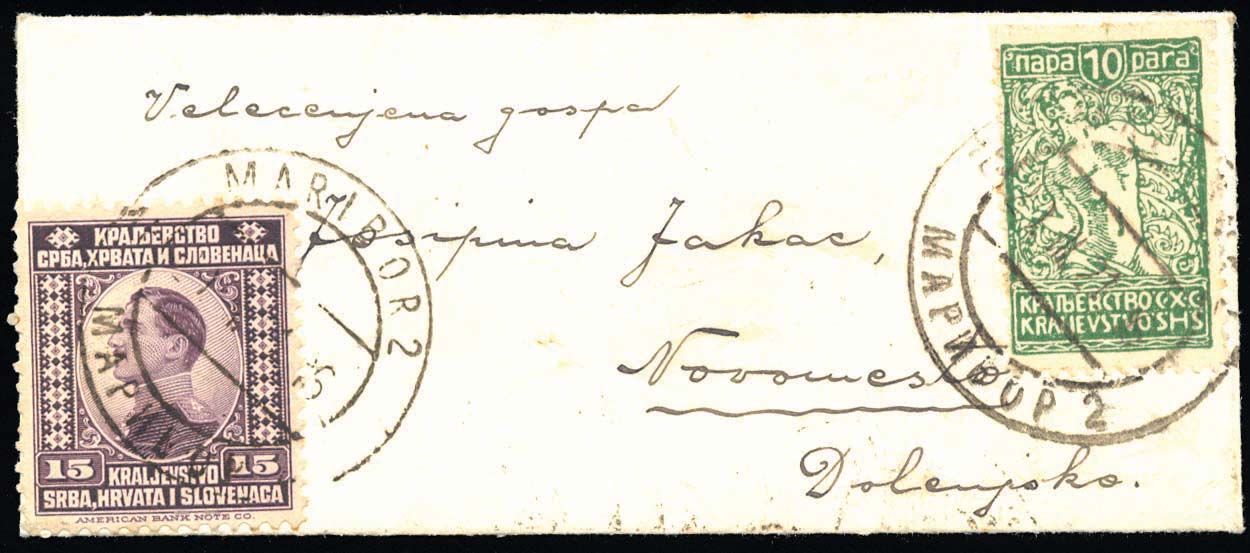 Velecenjena gospa
Josipina Jakac,
Novomesto
Dolenjsko.
КРАЉЕВСТВО
СРБА, ХРВАТА И СЛОВЕНАЦА
15 15
KRALJEVSTVO
SRBA, HRVATA I SLOVENACA
AMERICAN BANK NOTE CO.
MARIBOR 2
МАРИБОР
пара 10 para
КРАЉЕВСТВО С·Х·С
KRALJEVSTVO SHS
МАРИБОР 2